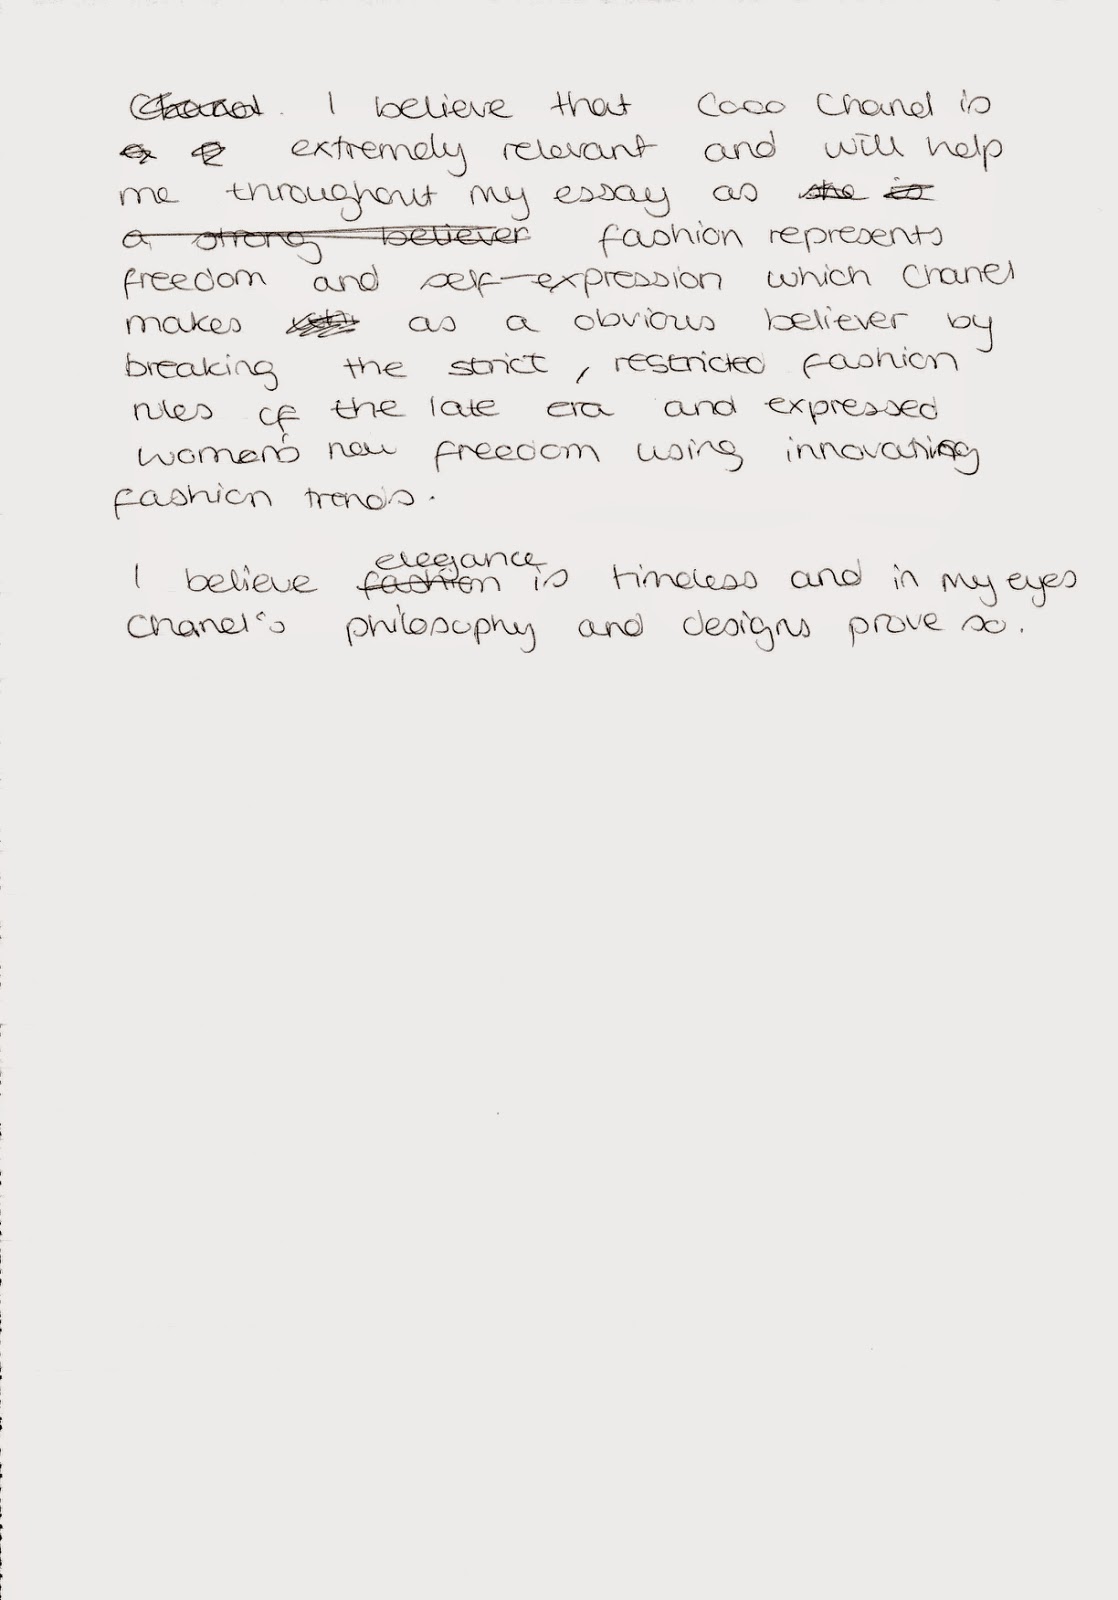 Chanel. I believe that Coco Chanel is
extremely relevant and will help
me throughout my essay as she is
a strong believer fashion represents
freedom and self-expression which Chanel
makes as a obvious believer by
breaking the strict, restricted fashion
rules of the late era and expressed
women's new freedom using innovating
fashion trends.
elegance
I believe fashion is timeless and in my eyes
Chanel's philosophy and designs prove so.